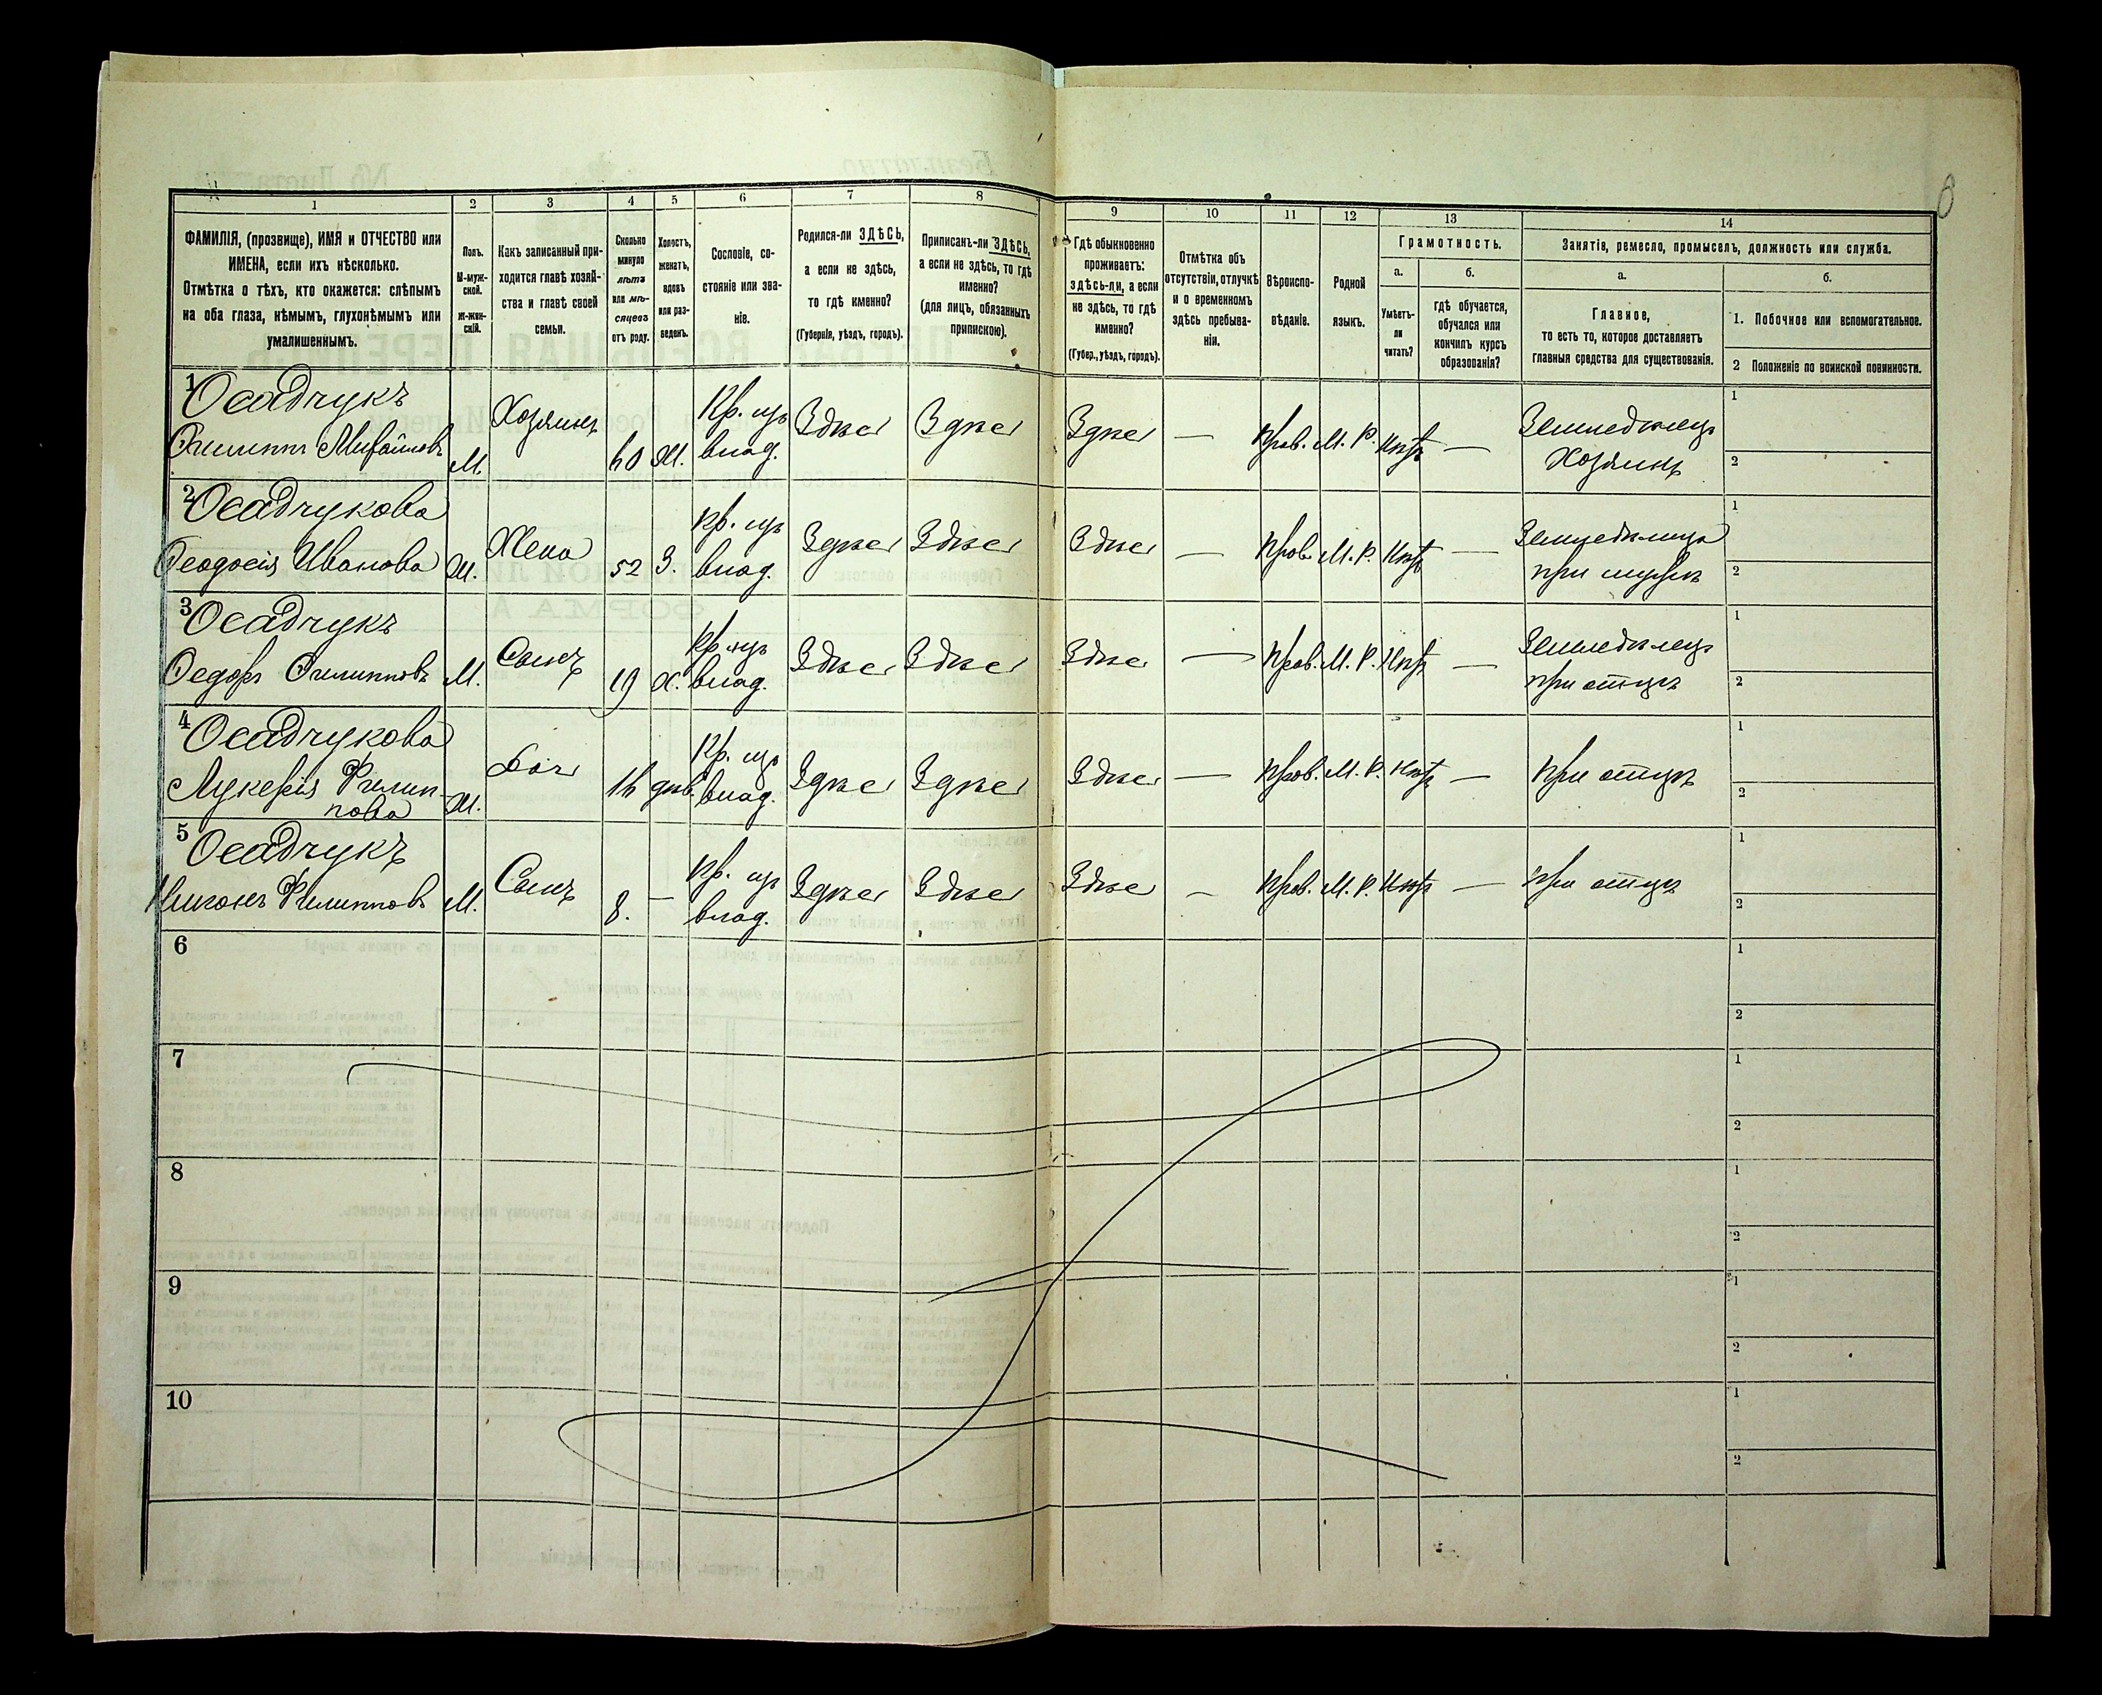 1 2 3 4 5 6 7 8 9 10 11 12 13 14
ФАМИЛІЯ, (прозвище), ИМЯ и ОТЧЕСТВО или
ИМЕНА, если ихъ нѣсколько.
Отмѣтка о тѣхъ, кто окажется: слѣпымъ
на оба глаза, нѣмымъ, глухонѣмымъ или
умалишеннымъ.
Полъ.
М-муж-
ской.
Ж-жен-
скій.
Какъ записанный при-
ходится главѣ хозяй-
ства и главѣ своей
семьи.
Сколько
минуло
лѣтъ
или мѣ-
сяцевъ
отъ роду.
Холостъ,
женатъ,
вдовъ
или раз-
веденъ.
Сословіе, со-
стояніе или зва-
ніе.
Родился-ли ЗДѢСЬ,
а если не здѣсь,
то гдѣ именно?
(Губернія, уѣздъ, городъ).
Приписанъ-ли ЗДѢСЬ,
а если не здѣсь, то гдѣ
именно?
(для лицъ, обязанныхъ
припискою).
Гдѣ обыкновенно
проживаетъ:
здѣсь-ли, а если
не здѣсь, то гдѣ
именно?
(Губер., уѣздъ, городъ).
Отмѣтка объ
отсутствіи, отлучкѣ
и о временномъ
здѣсь пребыва-
ніи.
Вѣроиспо-
вѣданіе.
Родной
языкъ.
Грамотность.
а.
Умѣетъ-
ли
читать?
б.
гдѣ обучается,
обучался или
кончилъ курсъ
образованія?
Занятіе, ремесло, промыселъ, должность или служба.
а.
Главное,
то есть то, которое доставляетъ
главныя средства для существованія.
б.
1. Побочное или вспомогательное.
2 Положеніе по воинской повинности.
1 Осадчукъ
Филиппъ Михайловъ М. Хозяинъ 60 Ж. Кр. изъ влад. Здѣсь Здѣсь Здѣсь — Прав. М. Р. Нѣтъ — Земледѣлецъ
Хозяинъ
1
2
2 Осадчукова
Феодосія Иванова Ж. Жена 52 З. Кр. изъ влад. Здѣсь Здѣсь Здѣсь — Прав. М. Р. Нѣтъ — Земледѣлица
при мужѣ
1
2
3 Осадчукъ
Федоръ Филипповъ М. Сынъ 19 Х. Кр. изъ влад. Здѣсь Здѣсь Здѣсь — Прав. М. Р. Нѣтъ — Земледѣлецъ
при отцѣ
1
2
4 Осадчукова
Лукерія Филип-
пова Ж. Доч 16 дѣв. Кр. изъ влад. Здѣсь Здѣсь Здѣсь — Прав. М. Р. Нѣтъ — При отцѣ
1
2
5 Осадчукъ
Никонъ Филипповъ М. Сынъ 8. — Кр. изъ влад. Здѣсь Здѣсь Здѣсь — Прав. М. Р. Нѣтъ — При отцѣ
1
2
6
1
2
7
1
2
8
1
2
9
1
2
10
1
2